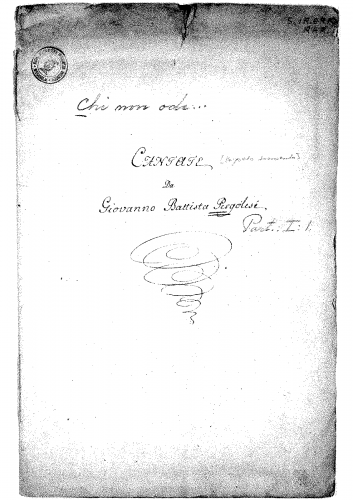 Chi non ode...
CANTATE
Da
Giovanno Battista Pergolesi.
Part. I. 1.